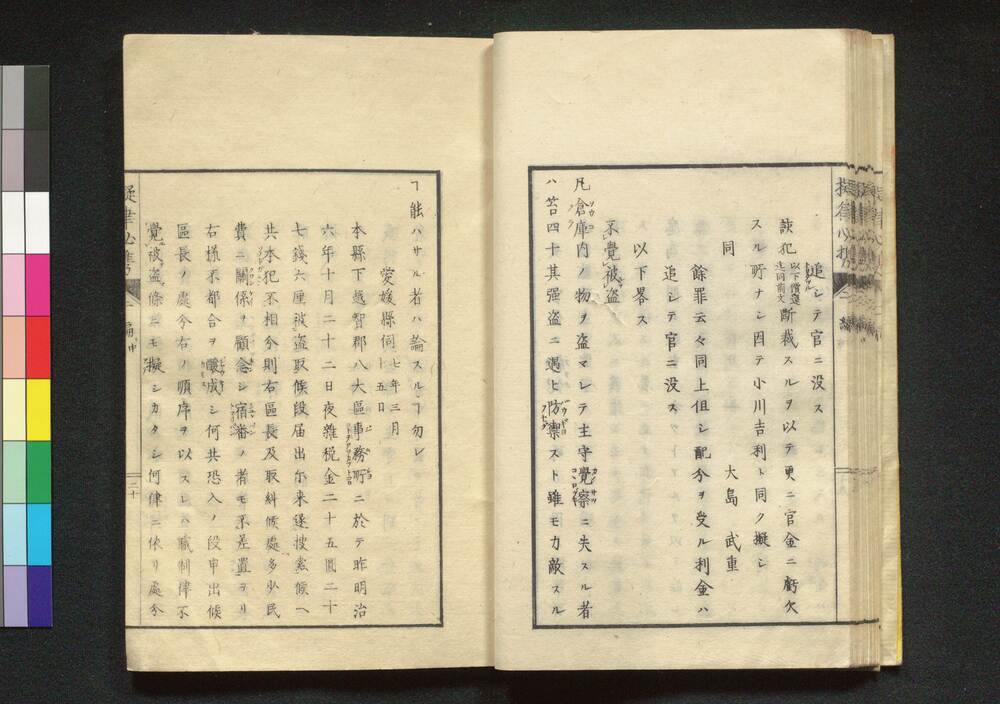 追シテ官ニ没ス
該犯以下償還ヒ同前文断裁スルヲ以テ更ニ官金ニ虧欠
スル所ナシ因テ小川吉利ト同ク擬シ
同　大島武重
餘罪云々同上但シ配分ヲ受ル利金ハ
追シテ官ニ没ス
以下畧ス
不覺被盗
凡倉庫内ノ物ヲ盗マレテ主守覺察ニ失スル者
ハ笞四十其强盗ニ遇ヒ防禦スト雖モ力敵スル
ヿ能ハサル者ハ論スルヿ勿レ
愛媛縣伺七年三月十五日
本縣下越智郡八大區事務所ニ於テ昨明治
六年十月二十二日夜雜税金二十五圓二十
七錢六厘被盗取候段届出尓来遂捜索候ヘ
共本犯不相分則右區長及取糾候處多少民
費ニ關係ヲ顧念シ宿番ノ者モ不差置ヨリ
右様不都合ヲ釀成シ何共恐入ノ段申出候
區長ノ處分右ノ順序ヲ以スレハ職制律不
覺被盗條ニモ擬シカタシ何律ニ依リ處分